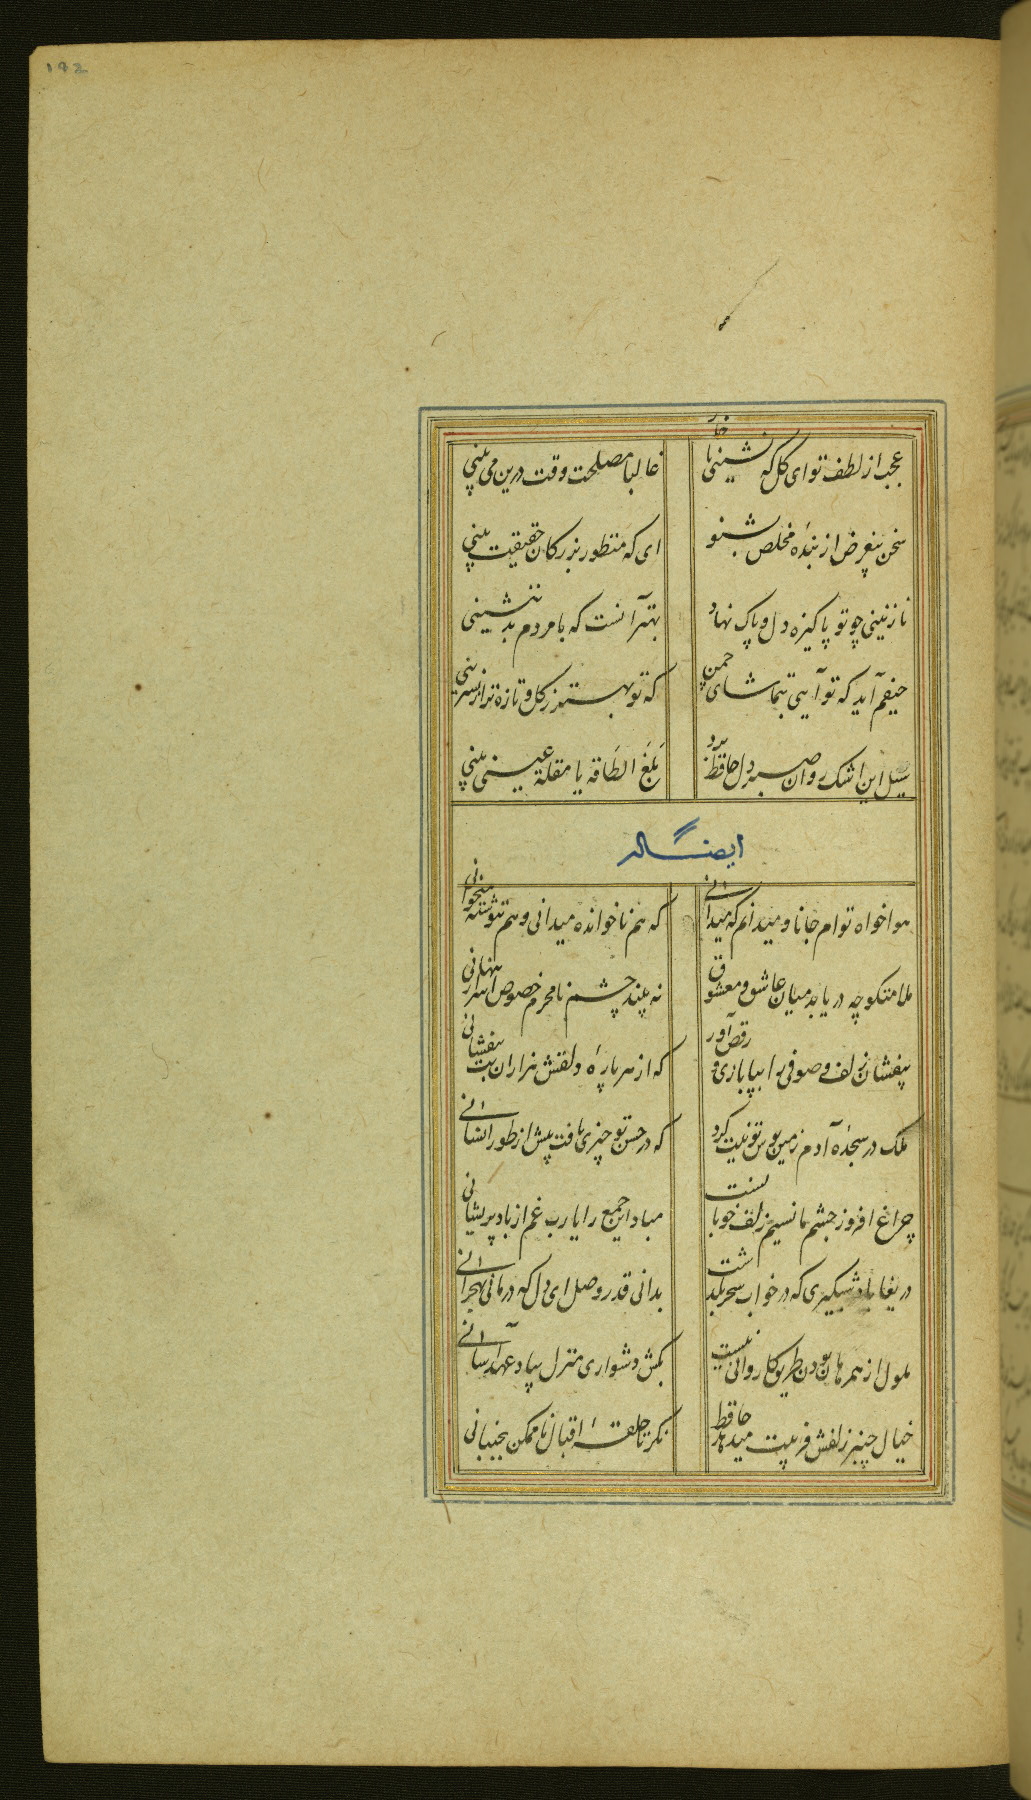 ۱۹۲
عجب از لطف تو ای کل که نشینی با خار
غالبا مصلحت وقت درین می بینی
سخن بیغرض از بندهٔ مخلص بشنو
ای که منظور بزرکان حقیقت بینی
نازنینی چو تو پاکیزه دل و پاک نهاد
بهتر آنست که با مردم بد ننشینی
حیفم آید که تو آیی بتماشای چمن
که تو بهتر ز کل و تازه تر از نسرینی
سیل این اشک روان صبر دل حافظ برد
بَلَغَ الطَاقَه یا مقلة عینی بینی
ایضا له
هوا خواه توام جانا و میدانم که میدانی
که هم ناخوانده میدانی و هم ننوشته میخوانی
ملامتکو چه دریابد میان عاشق و معشوق
نه بیند چشم نامحرم خصوص اسرار پنهانی
بیفشان زلف و صوفی را بپا بازی و رقص آور
که از هر پارهٔ دلقش هزاران بت بیفشانی
ملک در سجدهٔ آدم زمین بوس تو نیت کرد
که در حسن تو چیزی یافت بیش از طور انسانی
چراغ افروز چشم ما نسیم زلف خوبانست
مباد این جمع را یا رب غم از باد پریشانی
دریغا شبکیری که در خواب سحر بکذشت
بدانی قدر وصل ای دل که درمانی بهجرانی
ملول از همرهان بودن طریق کاروانی نیست
بکش دشواری منزل بیاد عهد آسانی
خیال چنبر زلفش فریبت میدهد حافظ
نکر تا حلقهٔ اقبال ناممکن نجنبانی